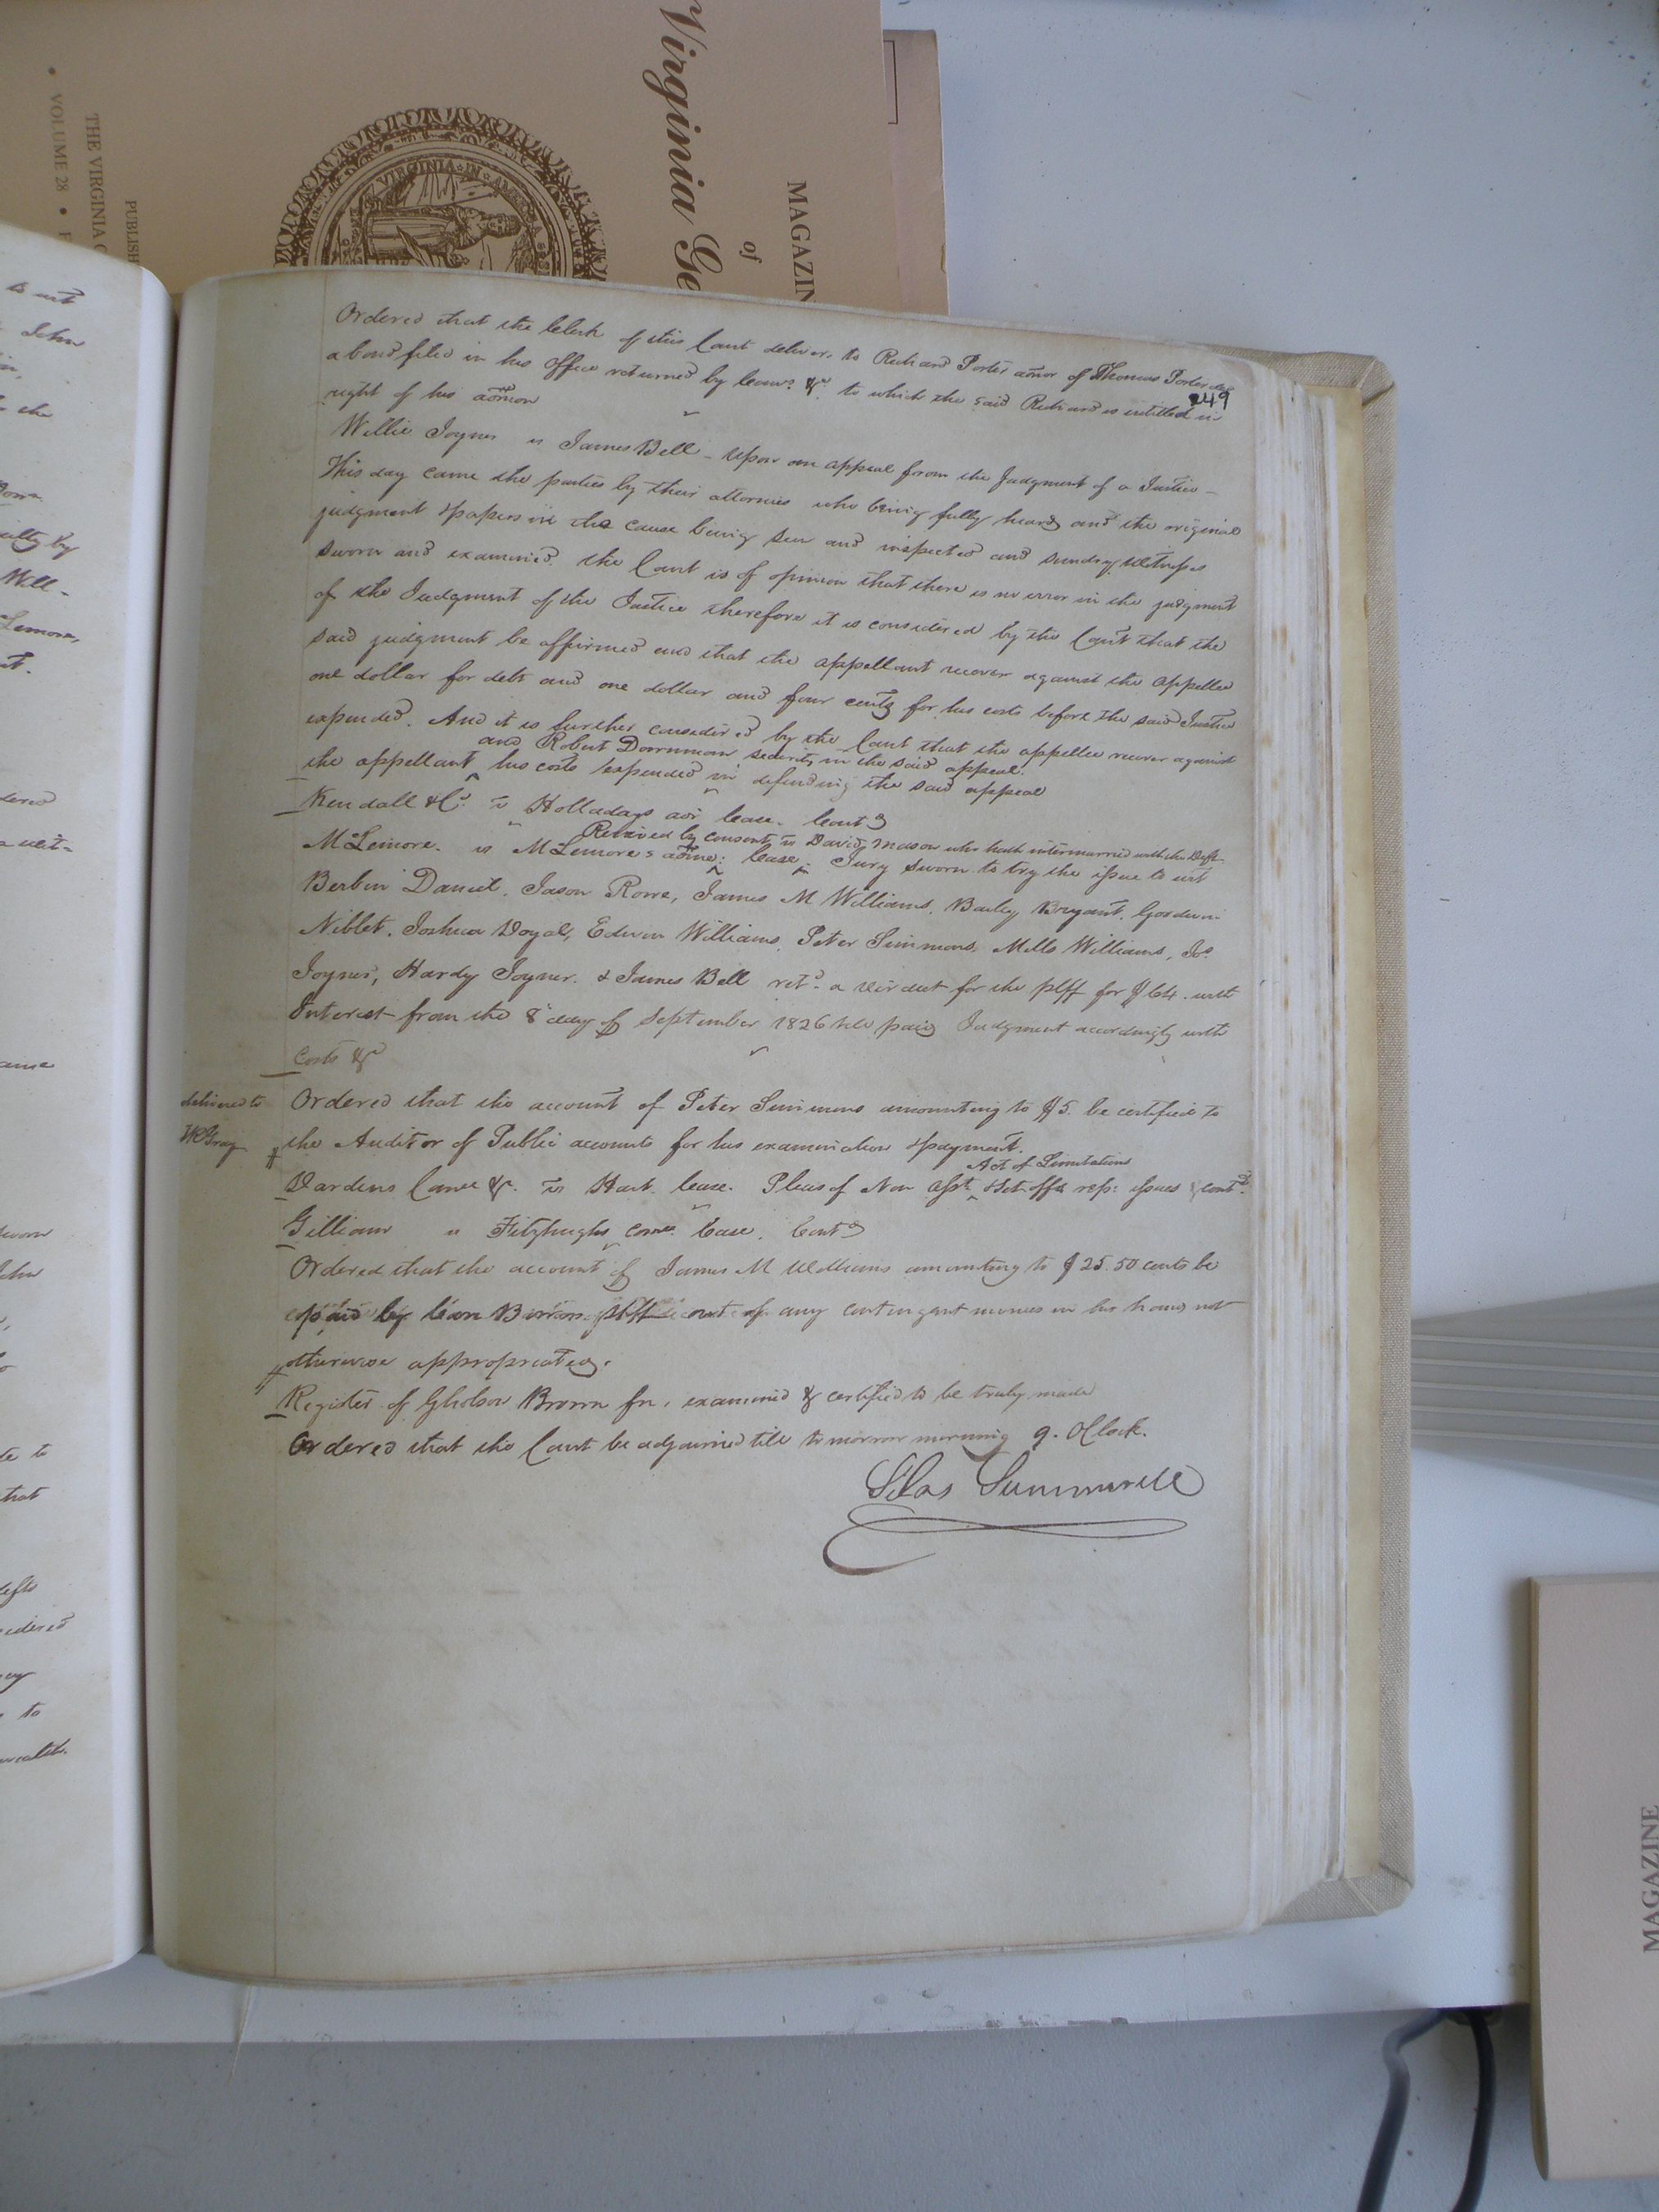 Virginia Ge
MAGAZIN
of
PUBLISH
THE VIRGINIA G
• VOLUME 28 •
VIRGINIA IN
249
Ordered that the Clerk of this Court deliver to Richard Porter admor of Thomas Porter decd
a bond filed in his Office returned by &c. to which the said Richard is entitled in
right of his admon
Willie Joyner vs James Bell - Upon an appeal from the Judgment of a Justice -
This day came the parties by their attornies who being fully heard and the original
judgment & papers in the cause being seen and inspected and sundry witnesses
sworn and examined. the Court is of opinion that there is no error in the judgment
of the Judgment of the Justice therefore it is considered by the Court that the
said judgment be affirmed and that the appellant recover against the appellee
one dollar for debt and one dollar and four cents for his costs before the said Justice
expended. And it is further considered by the Court that the appellee recover against
and Robert Doornmon security in the said appeal.
the appellant his costs expended in defending the said appeal
Kendall & Co. vs Holladays Case. Contd
Revived by consent vs David Mason who hath intermarried with the Deft
McLemore. vs McLemore's Case. Jury sworn to try the issue to wit
Berbin Daniel, Jason Rowe, James M Williams, Bailey Bryant, Goodwin
Niblet, Joshua Doyal, Edwin Williams, Peter Simmons, Mills Williams, Jos.
Joyner, Hardy Joyner. & James Bell retd. a verdict for the plff for $64. with
Interest from the 8 day of September 1826 till paid Judgment accordingly with
Costs &c
delivered to
W Gray
Ordered that the account of Peter Simmons amounting to $5. be certified to
the Auditor of Public accounts for his examination & payment.
Act of Limitations
Dardens Comee &c. vs Hart. Case. Pleas of Non Asst. & Set offs rep: issues & contd.
Gilliam vs Fitzhughs Comee. Case. Contd
Ordered that the account of James M Williams amounting to $25.50 cents be
paid by out of any contingent monies in his hands not
otherwise appropriated.
Register of Gholson Brown fn. examined & certified to be truly made
Ordered that the Court be adjourned till tomorrow morning 9. OClock.
Silas Summerell
MAGAZINE